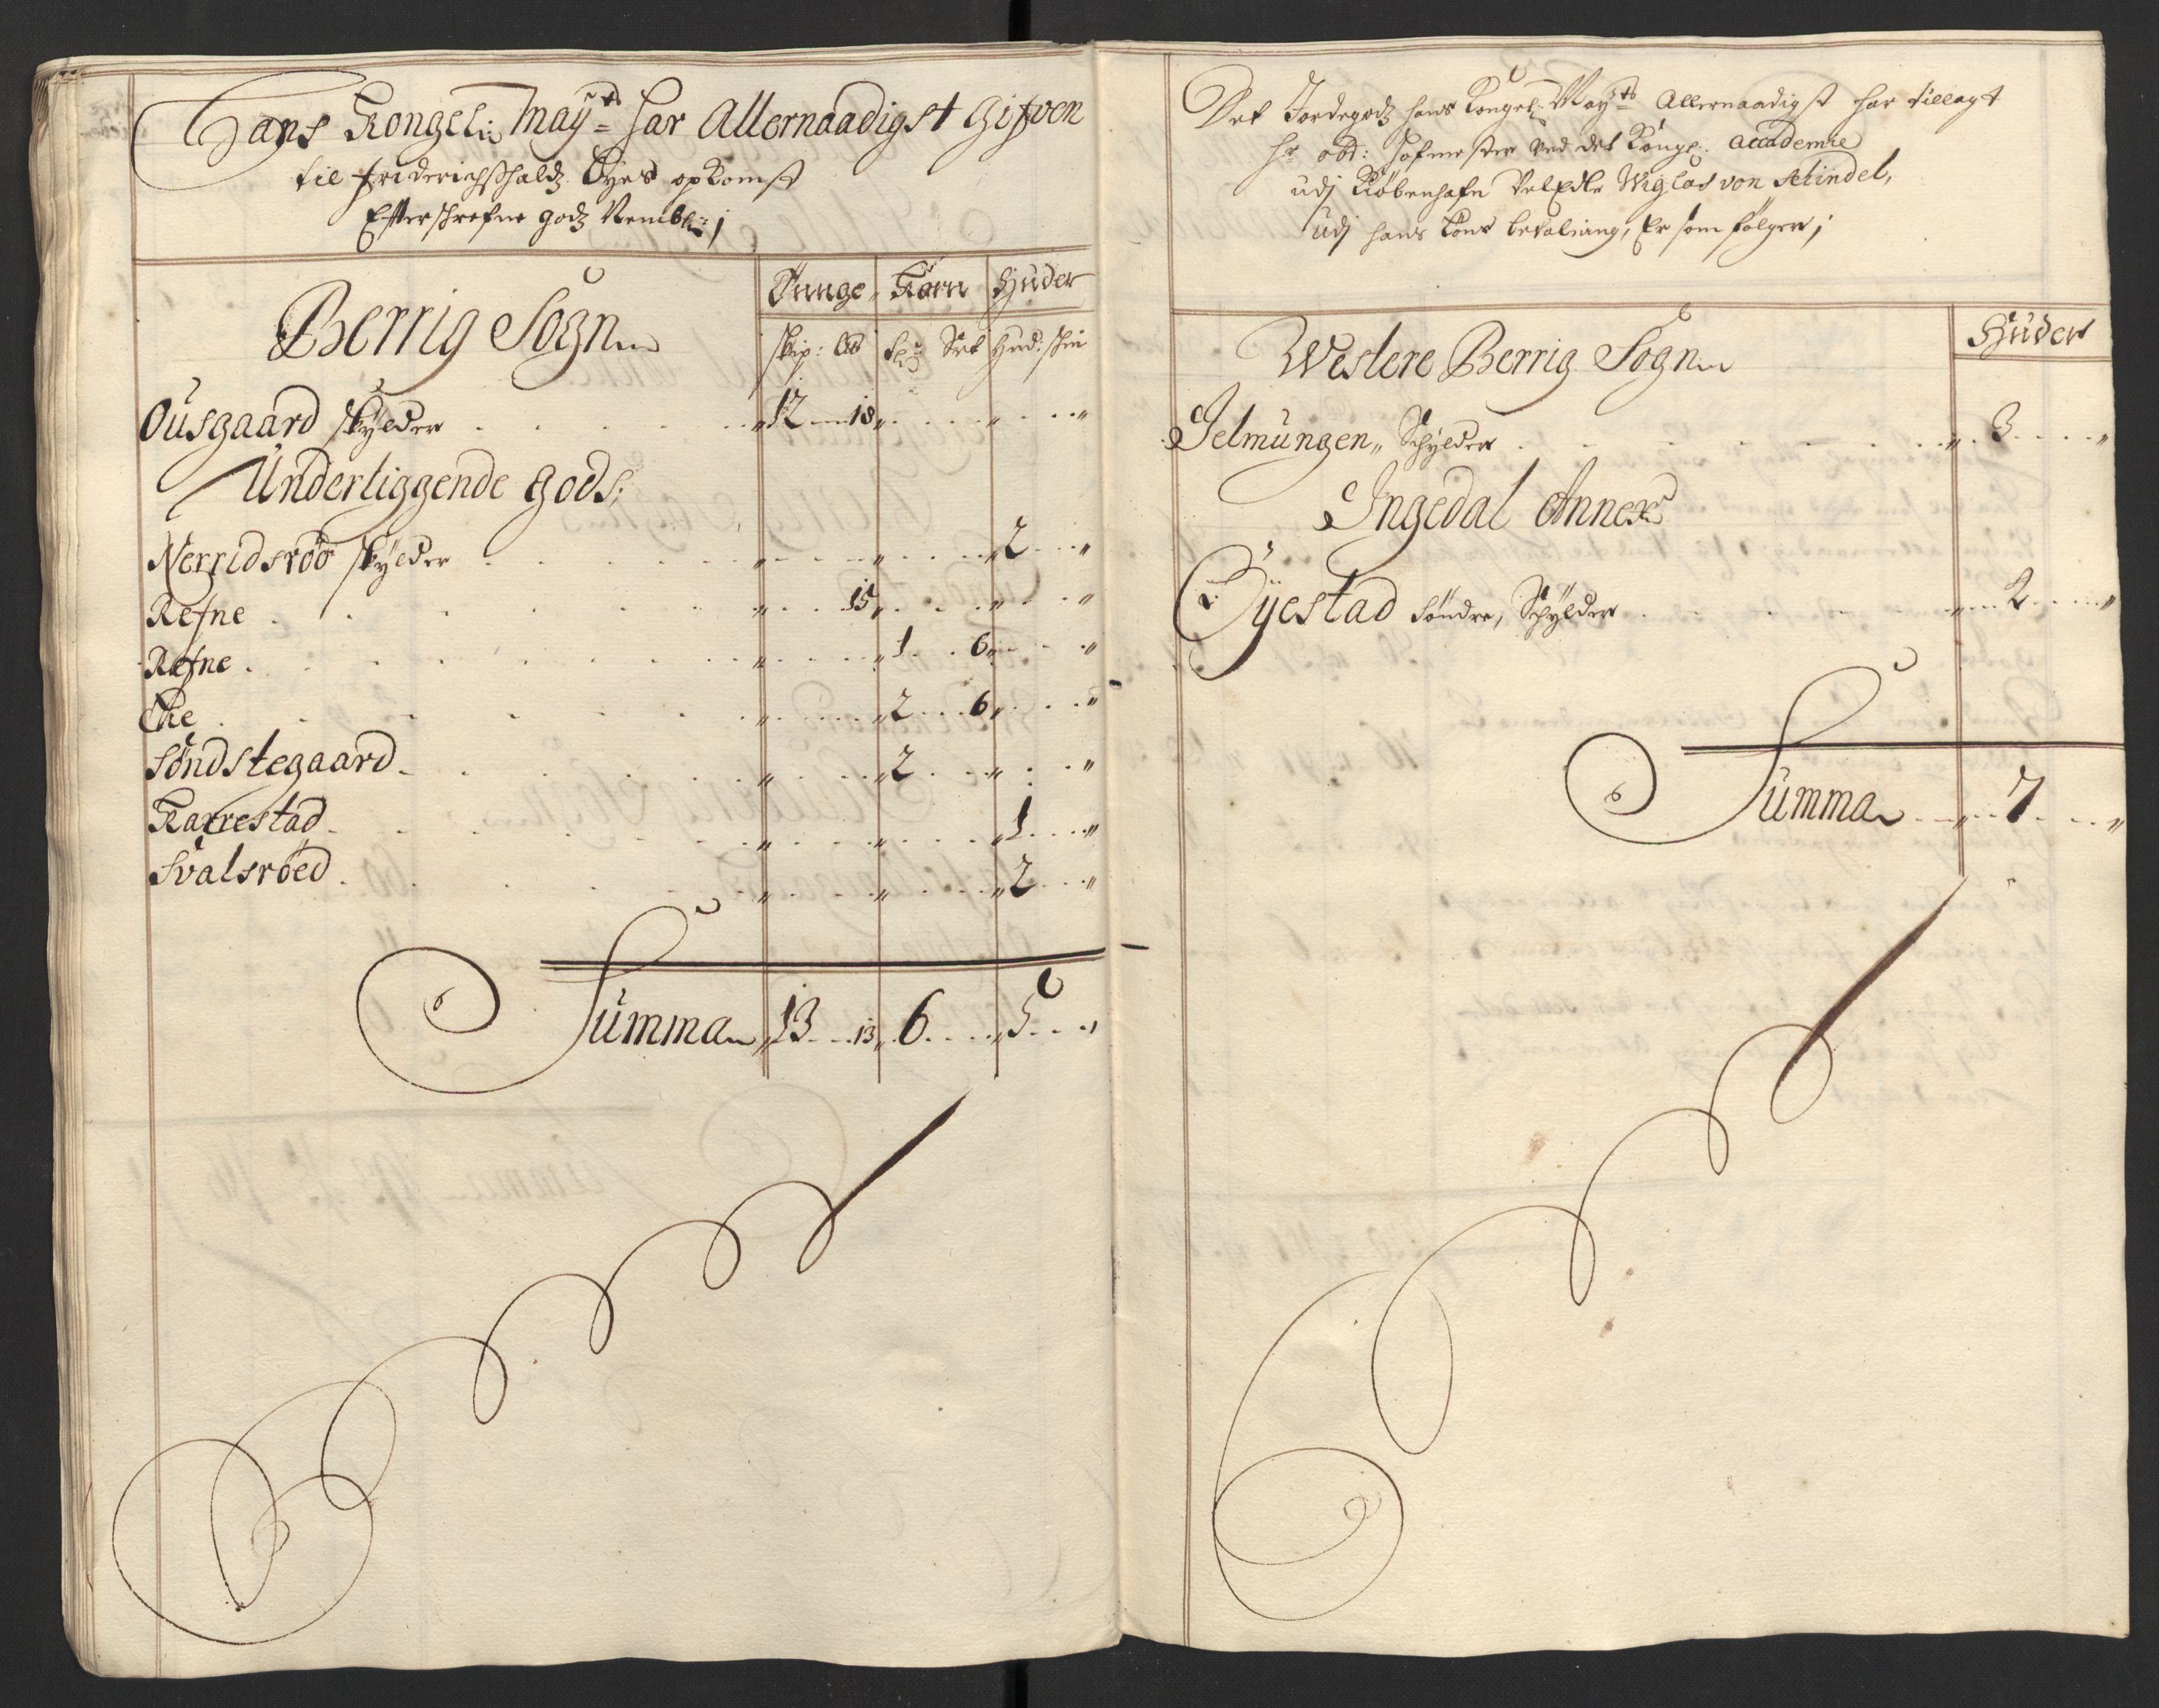 Hans Kongel: Mayts har Allernaadigst Gifven
til Friderichshalds Byes opkomst
Effterschrefne godz Nembl:
Berrig Sogn
Tunge Korn Huder
skip: Hud: skin
Ousgaard skylder 12 18
Underliggende Gods:
Nerridsröö skylder 2
Refne 15
Refne 1 6
Ehe 2 6
Söndstegaard 2
Karrestad 1
Svalsröed 2
Summa 13 13 6 5
Det Jordegodz hans Kongel: Mayts Allernaadigst har tillagt
hofmester ved det Kongl. Accademie
udj Kiöbenhafn Velædle Wiglas von Schindel,
udj hans Löns betaling, Er som fölger;
Westere Berrig Sogn
Huder
Jelmungen, Schylder 3
Ingedal Annex
Byestad Söndre, Schylder 2
Summa 7